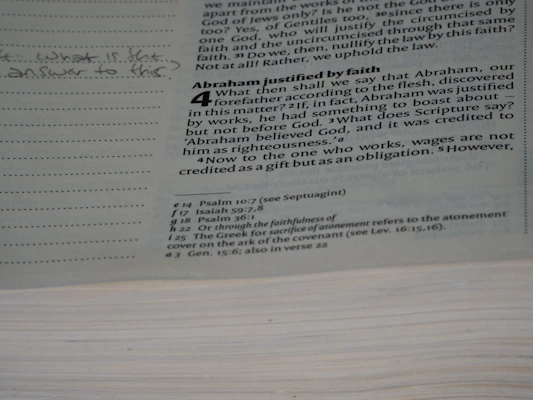 what is the
answer to this?
we maintain
apart from the works of
God of Jews only? Is he not the God
too? Yes, of Gentiles too, 30 since there is only
one God, who will justify the circumcised by
faith and the uncircumcised through that same
faith. 31 Do we, then, nullify the law by this faith?
Not at all! Rather, we uphold the law.
Abraham justified by faith
4 What then shall we say that Abraham, our
forefather according to the flesh, discovered
in this matter? 2 If, in fact, Abraham was justified
by works, he had something to boast about –
but not before God. 3 What does Scripture say?
‘Abraham believed God, and it was credited to
him as righteousness.’ a
4 Now to the one who works, wages are not
credited as a gift but as an obligation. 5 However,
e 14 Psalm 10:7 (see Septuagint)
f 17 Isaiah 59:7,8
g 18 Psalm 36:1
h 22 Or through the faithfulness of
i 25 The Greek for sacrifice of atonement refers to the atonement
cover on the ark of the covenant (see Lev. 16:15,16).
a 3 Gen. 15:6; also in verse 22